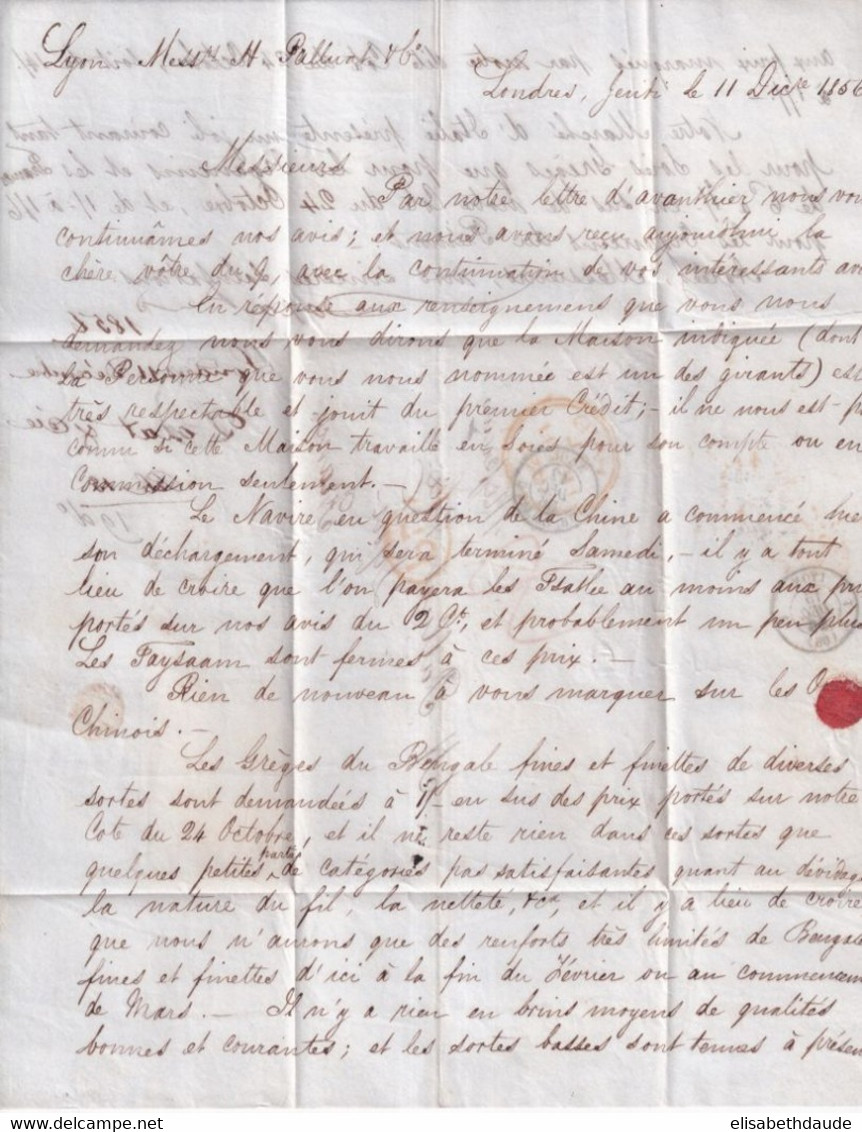 Lyon Mess.rs H. Palluat & C.o
Londres, Jeudi le 11 Dec.re 1856
Messieurs
Par notre lettre d'avanthier nous vous
continuâmes nos avis; et nous avons reçu aujourd'hui la
chère vôtre du 9, avec la continuation de vos interessants avi
En réponse aux renseignemens que vous nous
demandez nous vous dirons que la Maison indiquée (dont
la Personne que vous nous nommée est un des girants) es
très respectable et jouit du premier Crédit; - il ne nous est p
connu si cette Maison travaille en Soies pour son compte ou en
Commission seulement. -
Le Navire en question de la Chine a commencé hie
son déchargement, qui sera terminé Samedi, - il y a tout
lieu de croire que l'on payera les Tsatlee au moins aux pri
portés sur nos avis du 2 C.t, et probablement un peu plus
Les Taysaam sont fermes à ces prix. -
Rien de nouveau à vous marquer sur les O
Chinois. -
Les Grèges du Bengale fines et finettes de diverses
sortes sont demandées à 1/- en sus des prix portés sur notre
Cote du 24 Octobre, et il ne reste rien dans ces sortes que
quelques petites parties de catégories pas satisfaisantes quant au dévidage
la nature du fil, la netteté, &ca, et il y a lieu de croire
que nous n'aurons que des renforts très limités de Bengale
fines et finettes d'ici à la fin du Février ou au commencem
de Mars. - Il n'y a rien en brins moyens de qualités
bonnes et courantes; et les sortes basses sont tenues à présen
elisabethdaude